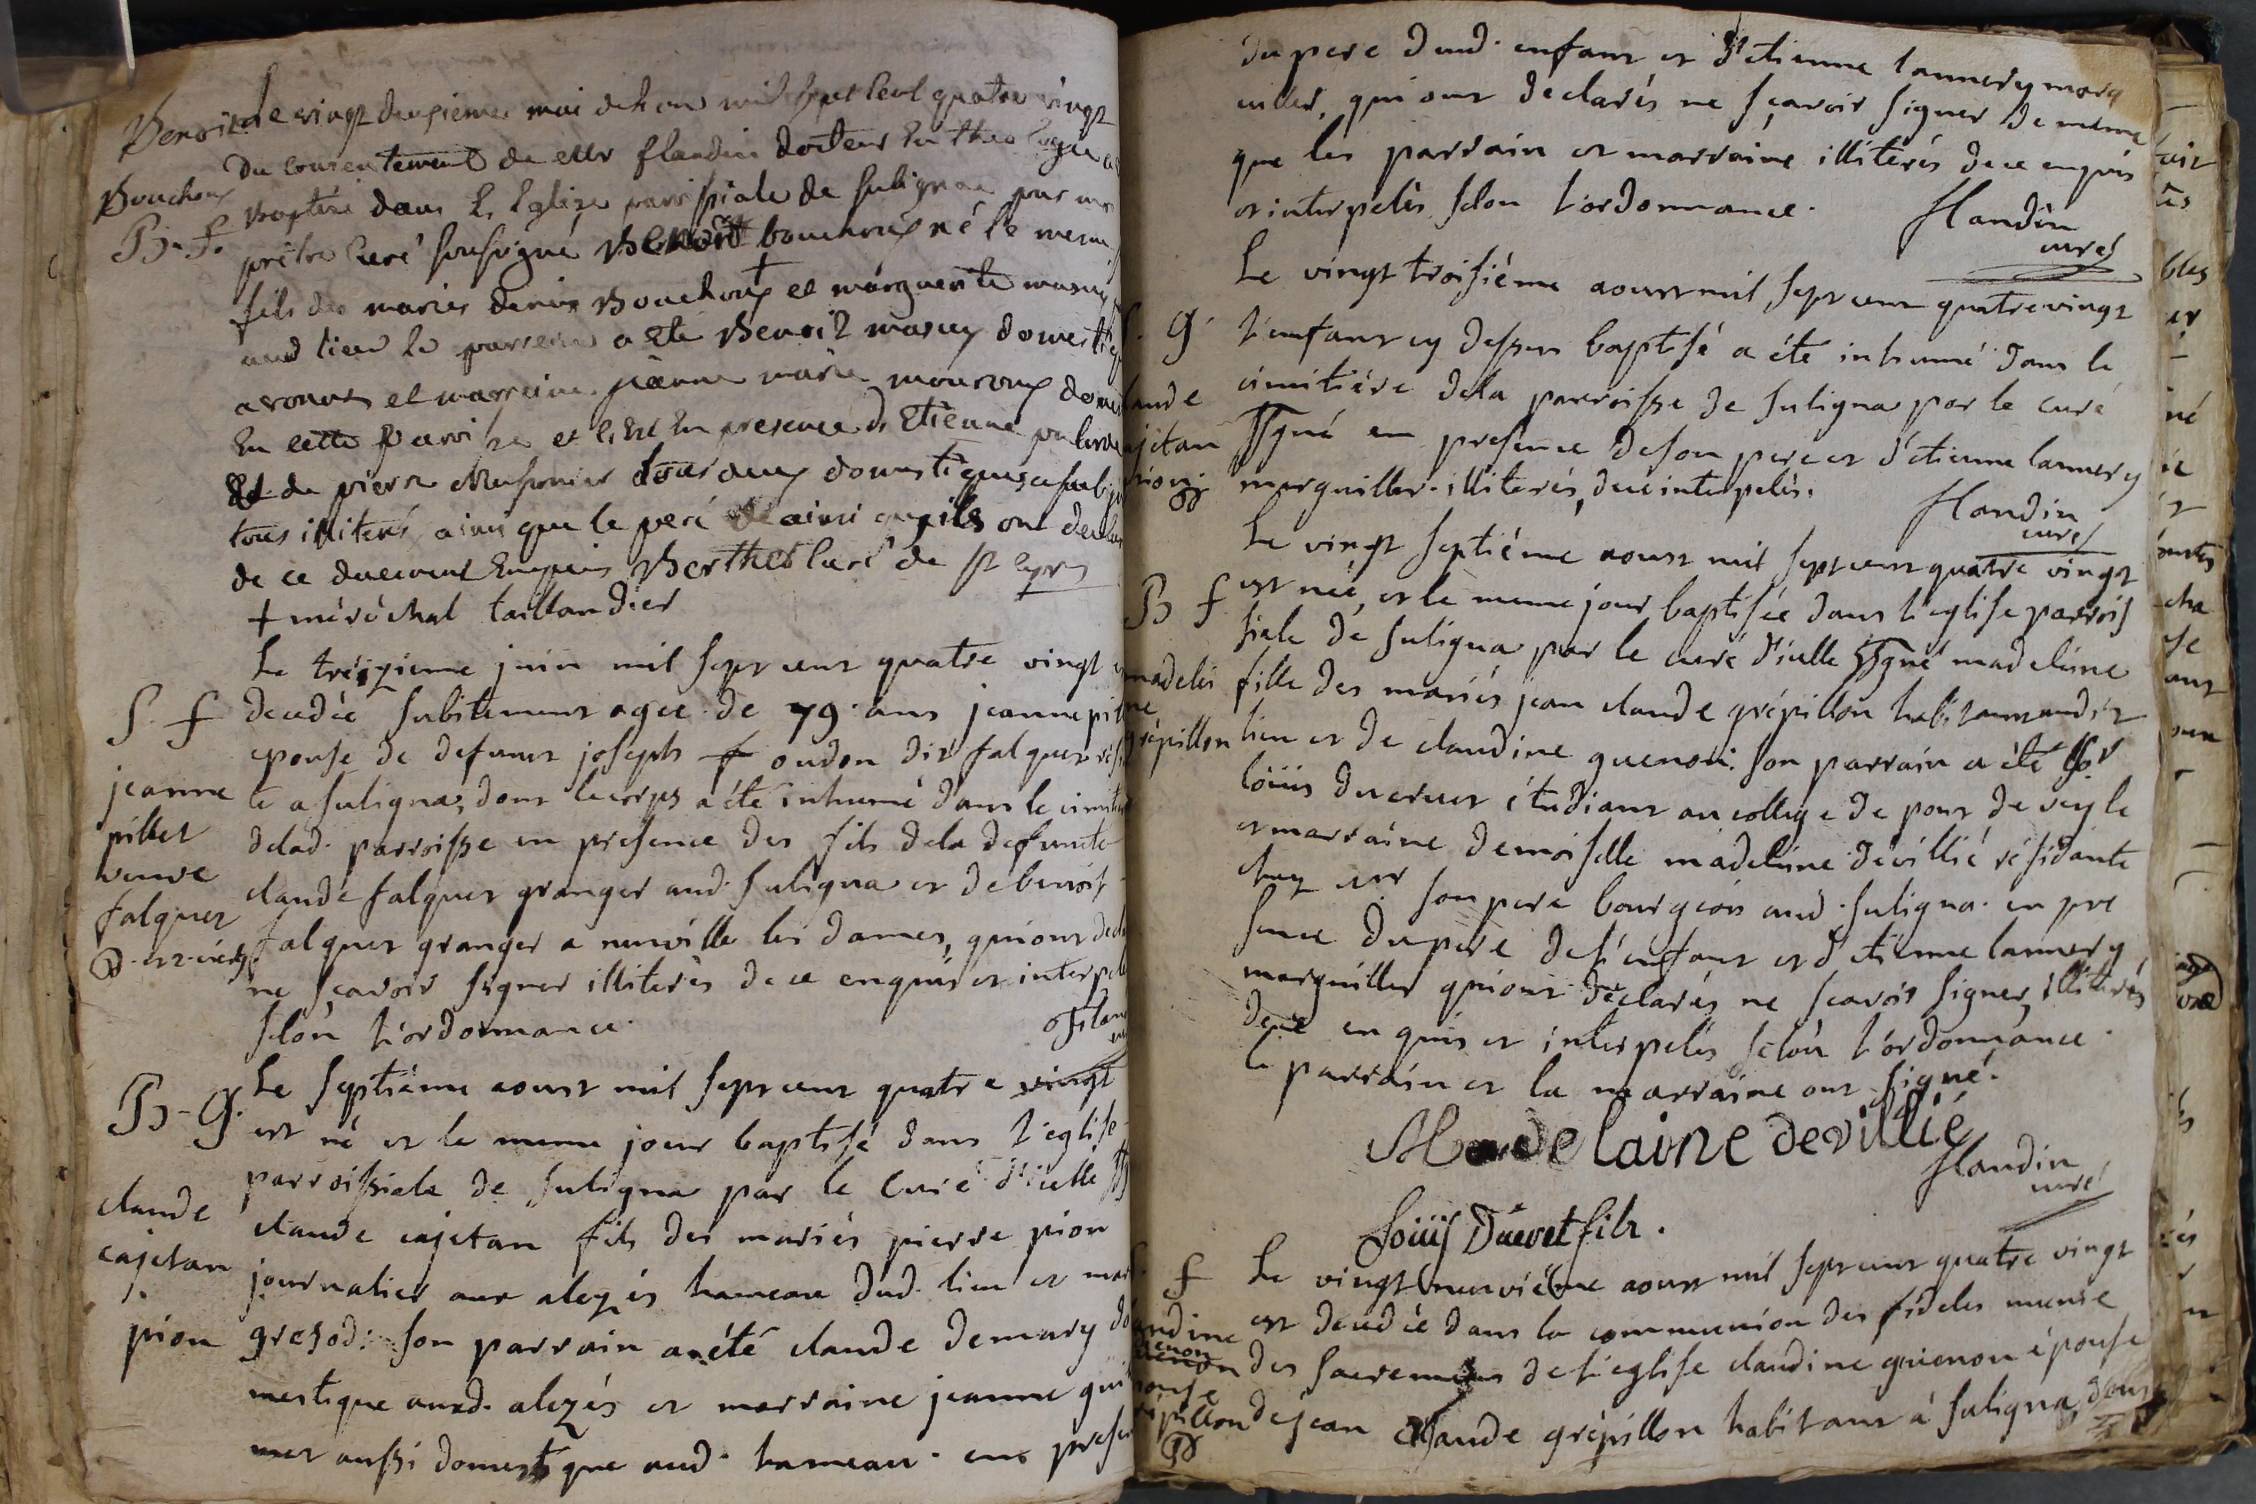 Benoit
Bouchoux
B. f.
le vingt deuxieme mai de l'an mil sept cent quatre vingt
du consentement de Mr flandin docteur en theologie
baptisé dans L'Eglise parroissiale de Suligna par moi
prêtre curé soussigné Benoit bouchoux né le meme
fils des mariés denis Bouchoux + et marguerite mazuy
aud lieu le parrein a eté Benoit mazuy domestique
et marreine jeanne marie
En cette parroisse et c'est En presence d'Etienne
Et de pierre tous deux domestiques a Suligna
tous illiterés ainsi que le peré ainsi qu'ils ont declaré
de ce duement Enquis Berthet curé de St Cyr
+ maréchal taillandier
S. f
jeanne
pillet
veuve
falquet
Le tréizieme juin mil sept cent quatre vingt
decedée subitement agee de 79 ans jeanne pillet
epouse de defunt joseph oudon dit falquet
te a Suligna, dont le corps a été inhumé dans le cimitiere
delad. parroisse en presence des fils dela defunte
claude falquet granger aud. Suligna et de benoit
falquet granger a neuville les dames, qui ont declaré
ne sçavoir signer illiterés de ce enquis et interpelés
selon l'ordonnance.
B. G.
claude
cajetan
pion
Le septiéme aoust mil sept cent quatre vingt
est né et le meme jour baptisé dans l'eglise
parroissiale de Suligna par le Curé d'icelle ssgné
claude cajetan fils des mariés pierre pion
journalier aux alezés hameau dud. lieu et
gresod. Son parrain a été claude demary do
mestique auxd. alezés et marraine jeanne gui
met aussi domestique aud. hameau. en presence
du pere dud. enfant et d'etienne lannery marg
uiller, qui ont declarés ne sçavoir signer de meme
que les parrain et marraine illiterés de ce enquis
et interpelés selon l'ordonnance.
flandin
curé
S. G.
claude
cajetan
pion
Le vingt troisiéme aoust mil sept cent quatre vingt
l'enfant cy dessus baptisé a été inhumé dans le
cimitiére dela parroisse de Suligna par le curé
ssgné en presence de son pere et d'étienne lannery
marguiller illiterés, de ce interpelés.
flandin
curé
B f
madelei
ne
grépillon
Le vingt septiéme aoust mil sept cent quatre vingt
est née, et le meme jour baptisée dans l'eglise parrois
siale de Suligna par le curé d'icelle ssgné madeleine
fille des mariés jean claude grépillon habitant aud.
lieu et de claudine guenon. Son parrain a été Sr
loüis ducret étudiant au collége de pont de veyle
et marraine demoiselle madeleine devillié résidante
chez Mr son pere bourgeois aud. Suligna. en pre
sence du pere de l'enfant et d'etienne lannery
marguiller qui ont déclarés ne sçavoir signer, illiterés
de ce enquis et interpelés selon l'ordonnance.
le parrain et la marraine ont signé.
Madelaine devillié
flandin
curé
Loüis Ducret fils.
f
Le vingt neuviéme aoust mil sept cent quatre vingt
est decedée dans la communion des fideles munie
des sacremens de l'eglise claudine guenon épouse
de jean claude grépillon habitant à Suligna, dont